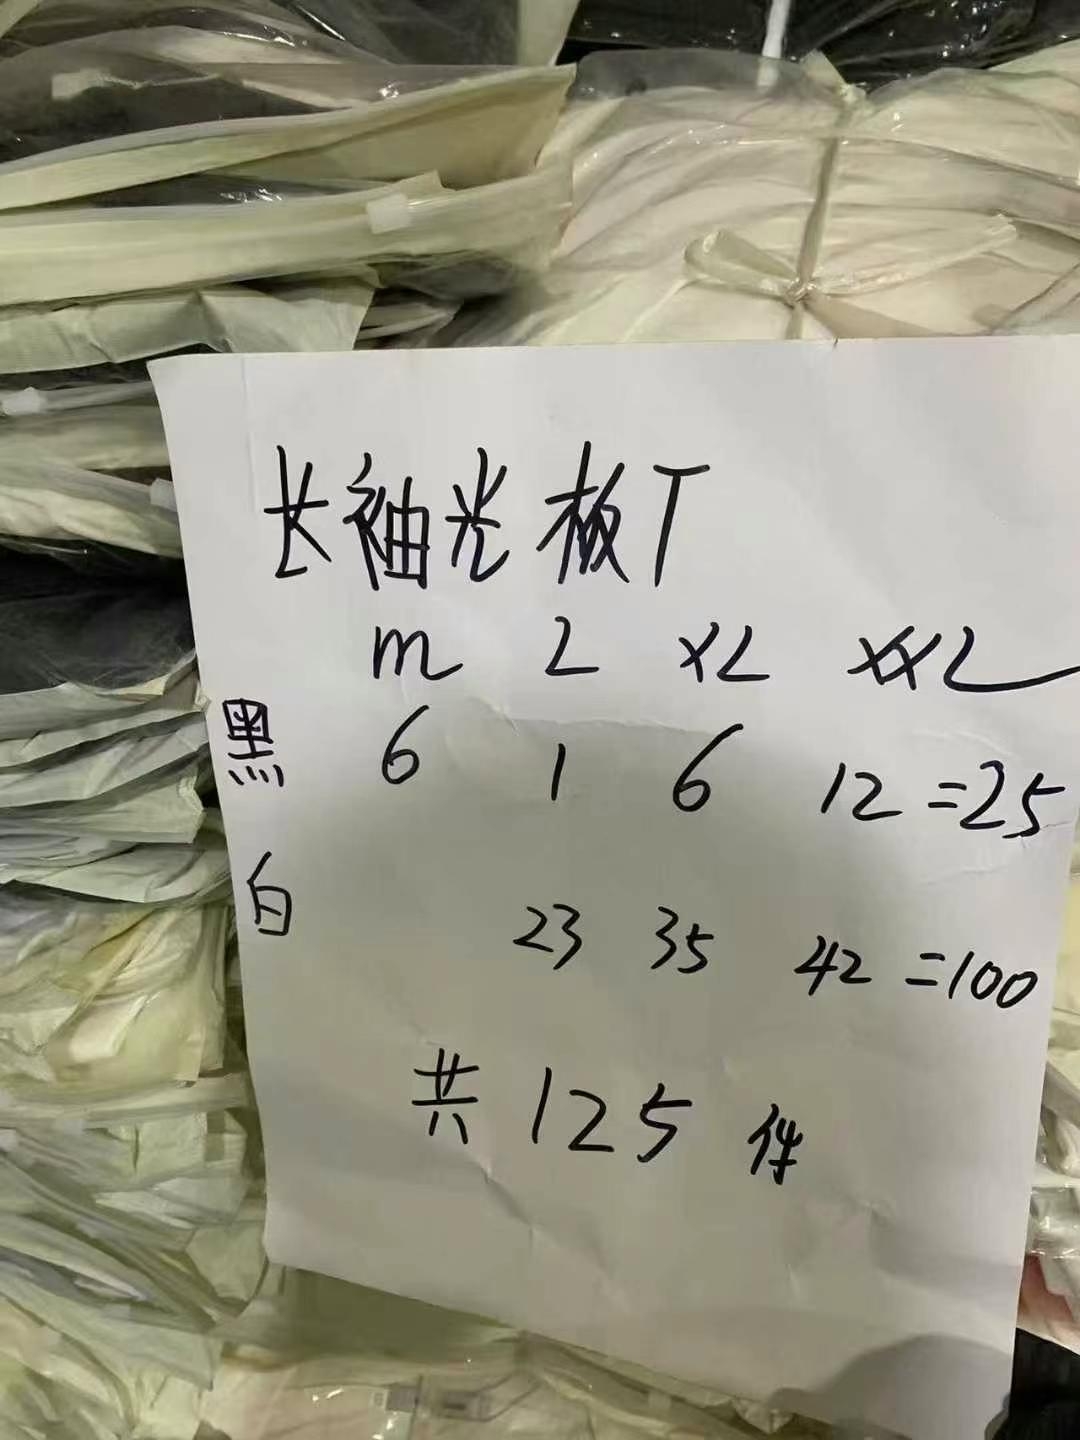 长袖光板T
m L XL XXL
黑 6 1 6 12 =25
白 23 35 42 =100
共 125 件